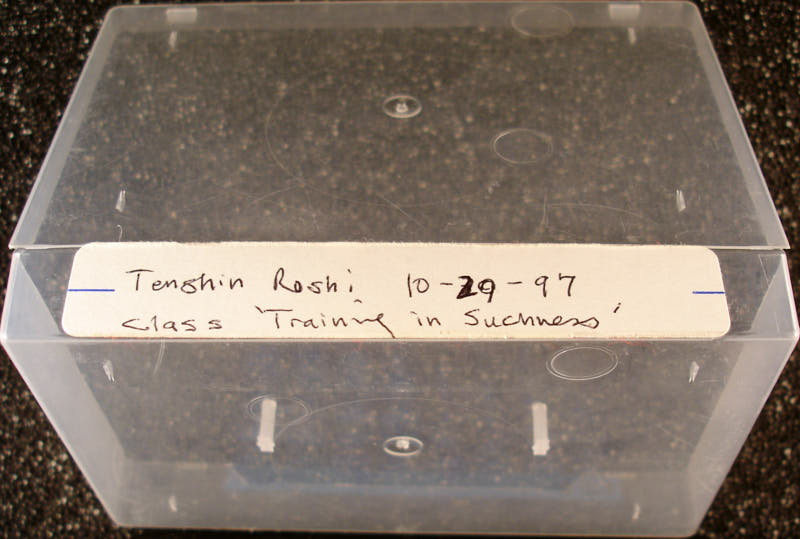 Tenshin Roshi 10-29-97
Class 'Training in Suchness'